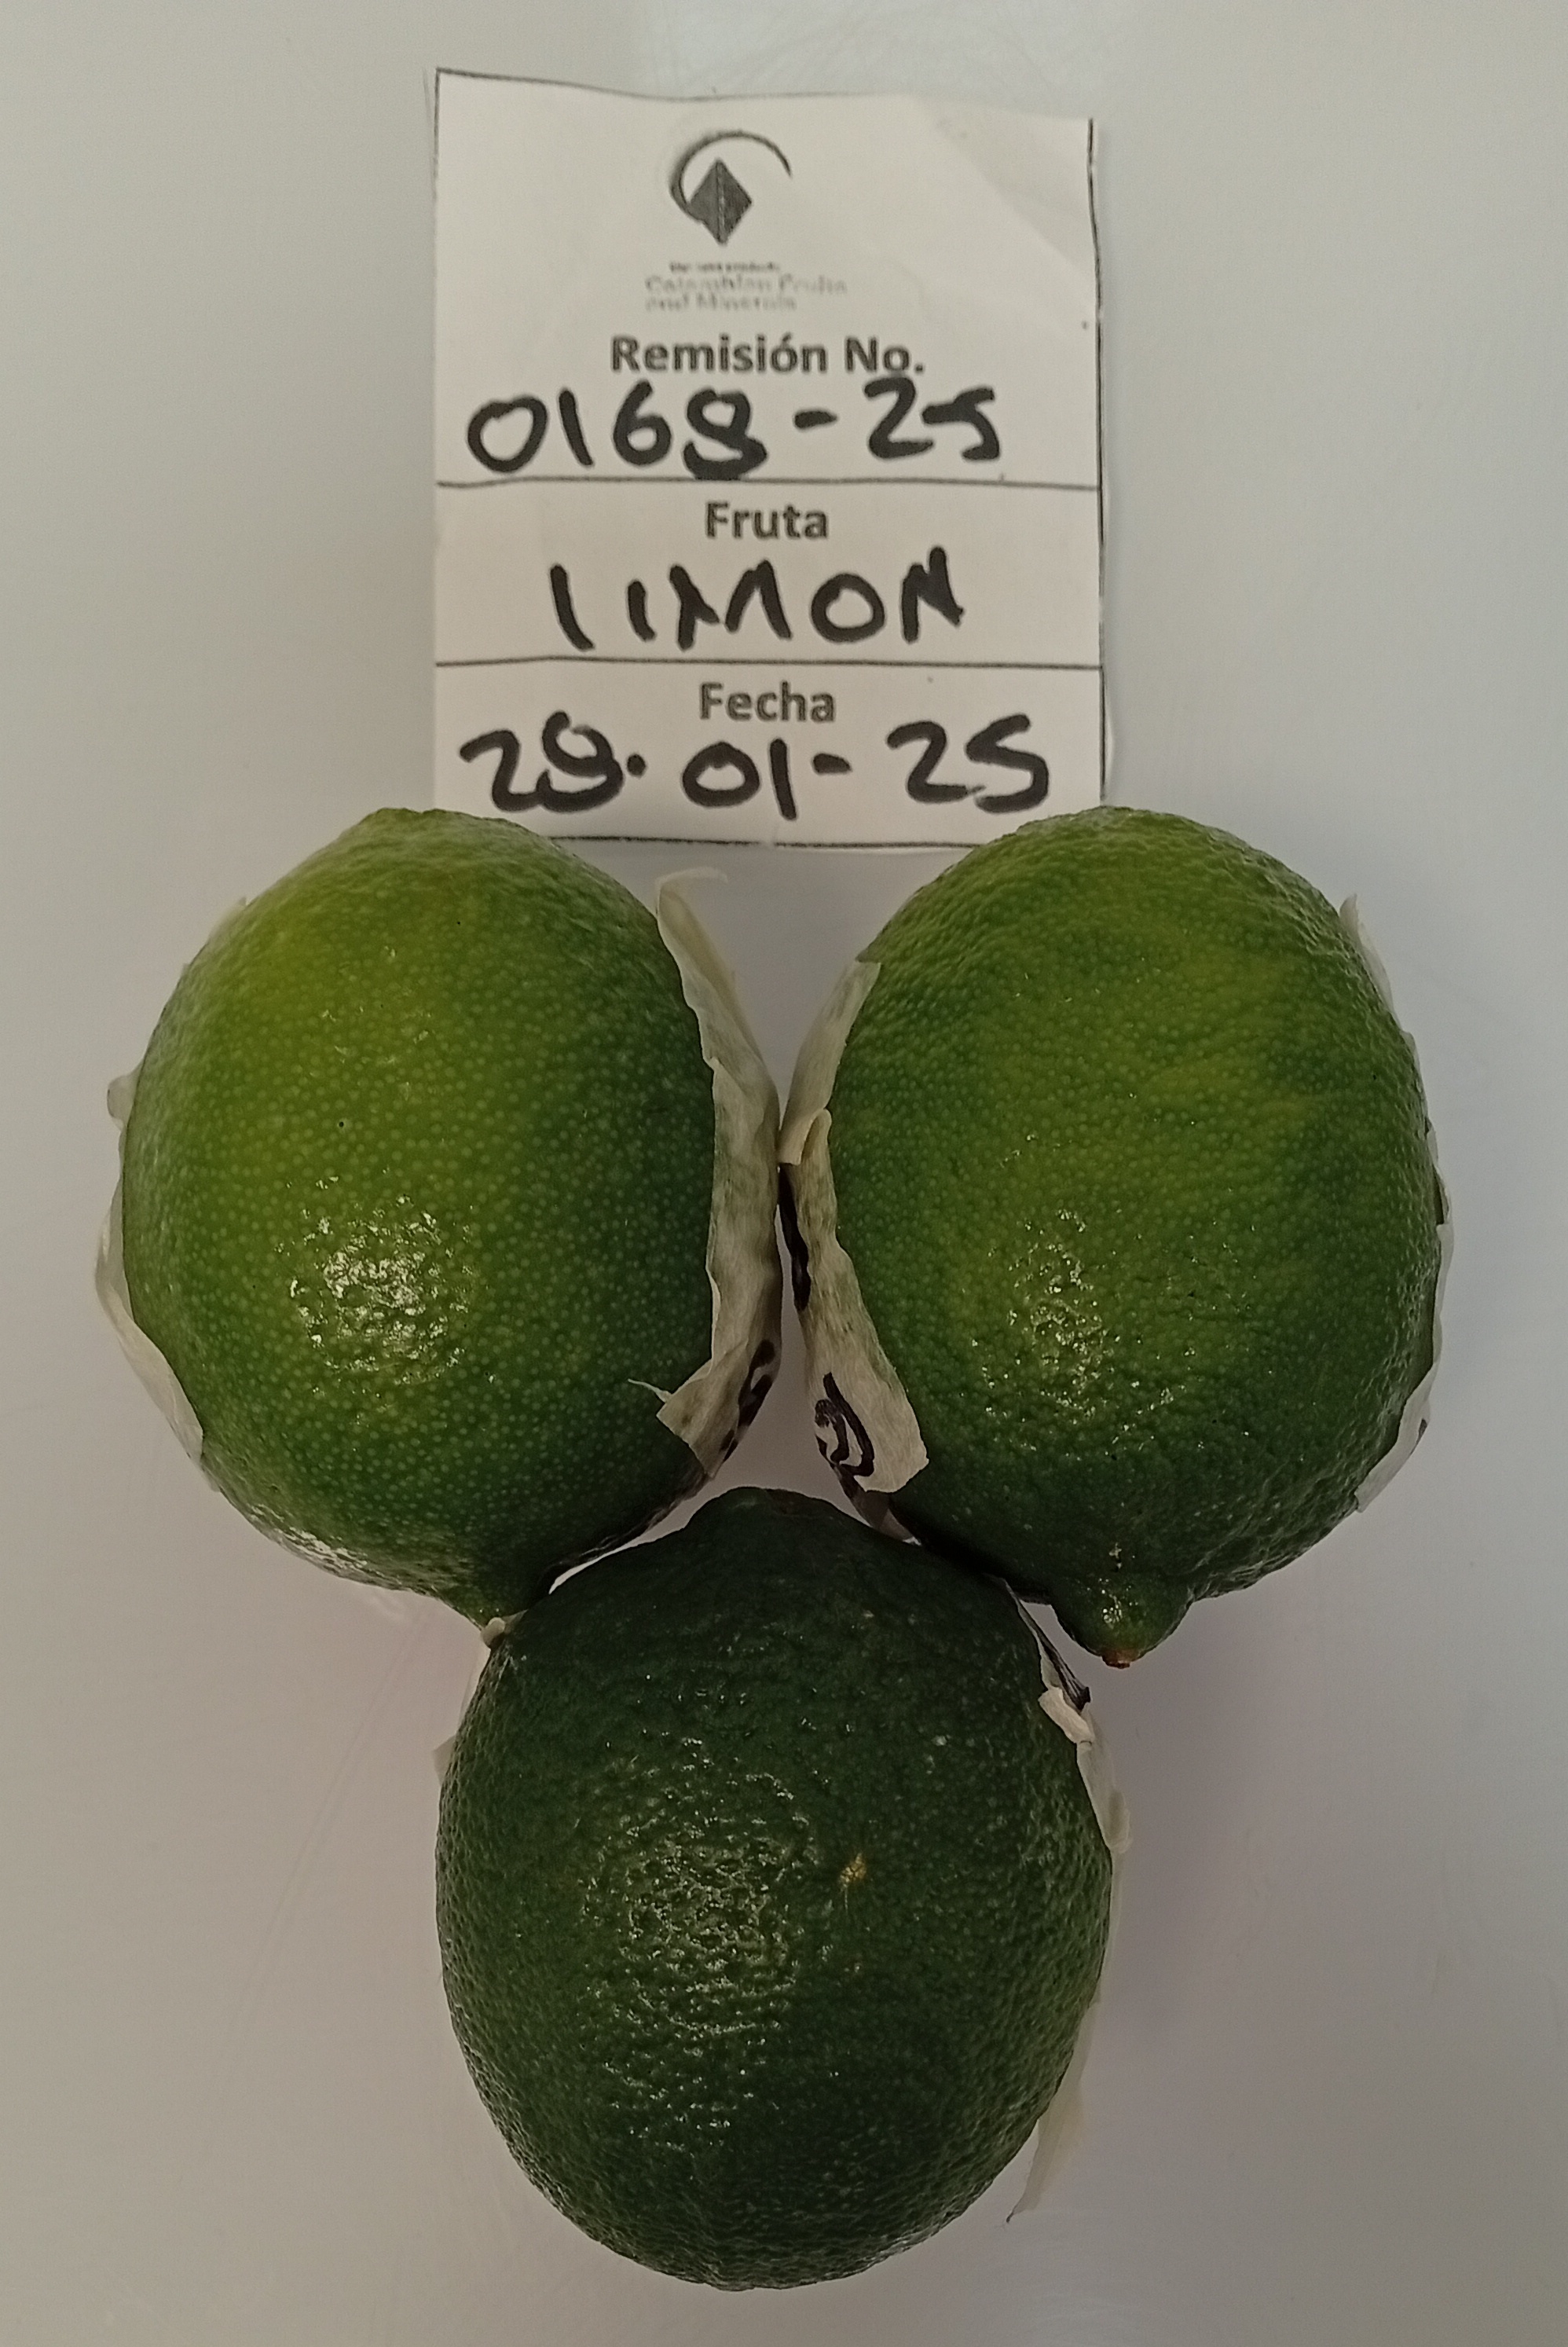 Colombian Fruits
and Minerals
Remisión No.
0168-25
Fruta
LIMON
Fecha
28-01-25